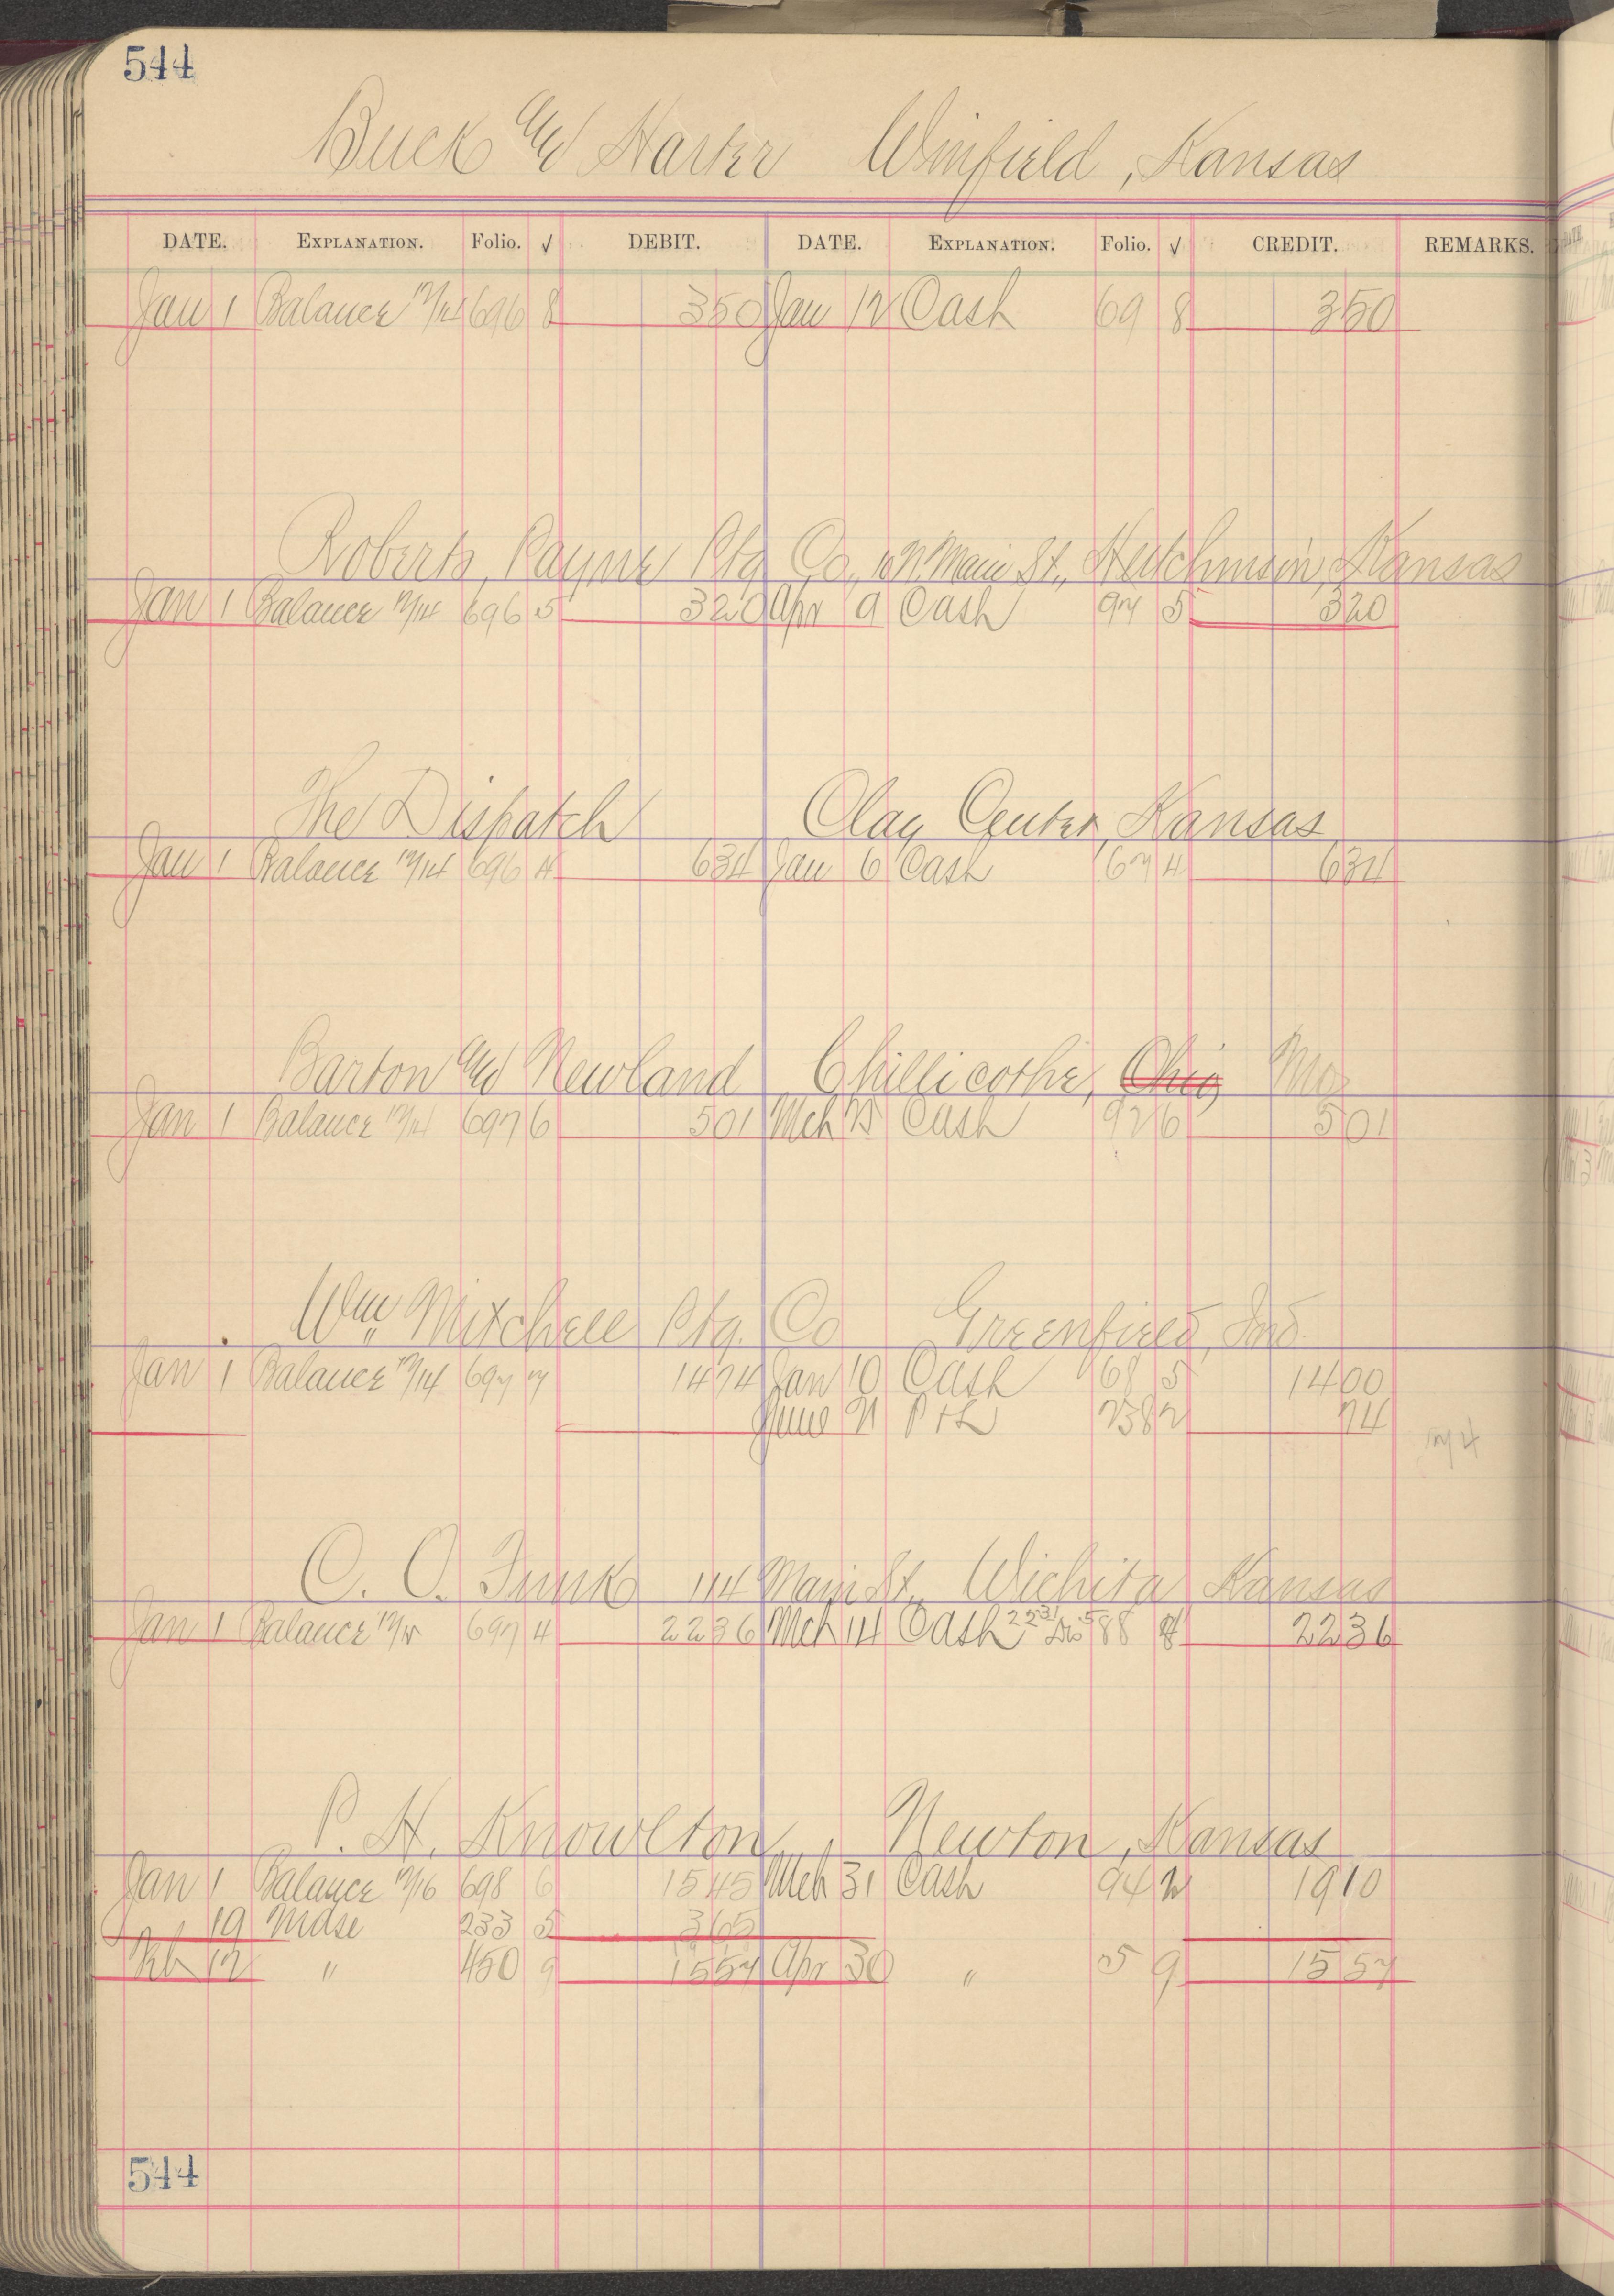 544
Buck and Harter Winfield, Kansas
DATE. EXPLANATION. Folio. √ DEBIT. DATE. EXPLANATION. Folio. √ CREDIT. REMARKS.
Jan 1 Balance 12/14 696 8 350 Jan 12 Cash 69 8 350
Roberts, Payne Ptg Co, N. Main St., Hutchinson, Kansas
Jan 1 Balance 12/14 696 5 320 Apr 9 Cash 97 5 320
The Dispatch Clay Center, Kansas
Jan 1 Balance 12/14 696 4 634 Jan 6 Cash 67 4 634
Barton and Newland Chillicothe, Ohio Mo
Jan 1 Balance 12/14 697 6 501 Mch Cash 92 6 501
Wm Mitchell Ptg. Co Greenfield, Ind.
Jan 1 Balance 12/14 697 7 1474 Jan 10 Cash 68 5 1400
June 21 P+L 238 2 74
C. O. Funk 114 Main St., Wichita Kansas
Jan 1 Balance 697 4 2236 Mch 14 Cash 88 8 2236
P. H. Knowlton, Newton, Kansas
Jan 1 Balance 12/16 698 6 1545 Mch 31 Cash 94 2 1910
19 Mdse 233 5 365
Feb 12 " 450 9 1557 Apr 30 " 5 9 1557
544